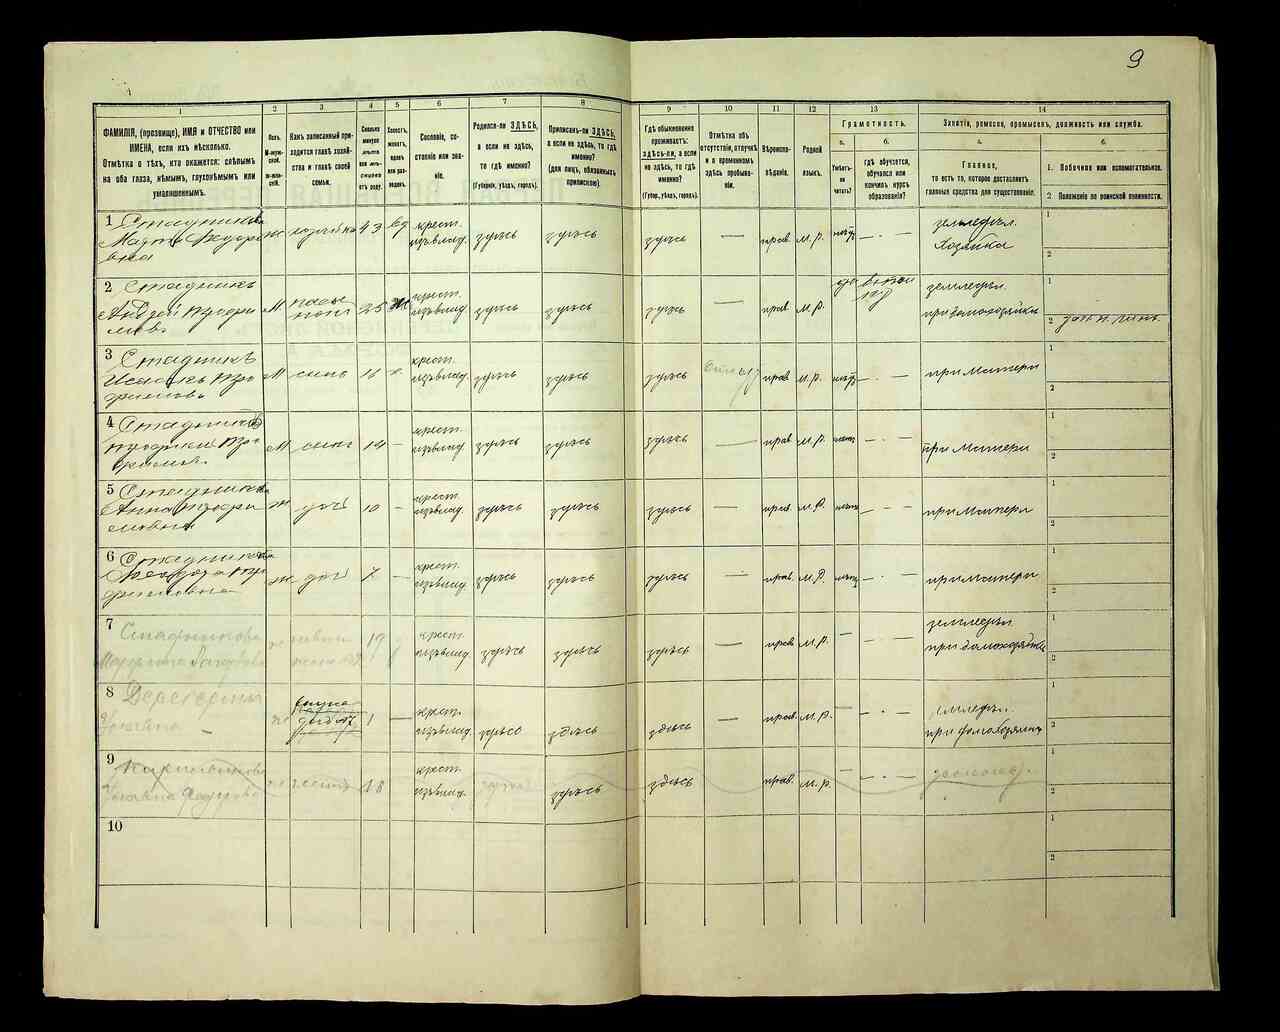 9
1
2
3
4
5
6
7
8
9
10
11
12
13
14
ФАМИЛІЯ, (прозвище), ИМЯ и ОТЧЕСТВО или
ИМЕНА, если ихъ нѣсколько.
Отмѣтка о тѣхъ, кто окажется: слѣпымъ
на оба глаза, нѣмымъ, глухонѣмымъ или
умалишеннымъ.
Полъ.
М-муж-
ской.
Ж-жен-
скій.
Какъ записанный при-
ходится главѣ хозяй-
ства и главѣ своей
семьи.
Сколько
минуло
лѣтъ
или мѣ-
сяцевъ
отъ роду.
Холостъ,
женатъ,
вдовъ
или раз-
веденъ.
Сословіе, со-
стояніе или зва-
ніе.
Родился-ли ЗДѢСЬ,
а если не здѣсь,
то гдѣ именно?
(Губернія, уѣздъ, городъ).
Приписанъ-ли ЗДѢСЬ,
а если не здѣсь, то гдѣ
именно?
(для лицъ, обязанныхъ
припискою).
Гдѣ обыкновенно
проживаетъ:
здѣсь-ли, а если
не здѣсь, то гдѣ
именно?
(Губер, уѣздъ, городъ).
Отмѣтка объ
отсутствіи, отлучкѣ
и о временномъ
здѣсь пребыва-
ніи.
Вѣроиспо-
вѣданіе.
Родной
языкъ.
Грамотность.
а.
Умѣетъ-
ли
читать?
б.
гдѣ обучается,
обучался или
кончилъ курсъ
образованія?
Занятіе, ремесло, промыселъ, должность или служба.
а.
Главное,
то есть то, которое доставляетъ
главныя средства для существованія.
б.
1. Побочное или вспомогательное.
2 Положеніе по воинской повинности.
1 Стадникова
Марта Ѳедоро
вна
ж хозяйка 43 вд крест.
изъ влад. здѣсь здѣсь здѣсь — прав. м.р. нѣтъ — . — земледѣл.
Хозяйка
1
2
2 Стадникъ
Трофи
мовъ
м 25 ж крест.
изъ влад. здѣсь здѣсь здѣсь — прав. м.р. да земледѣл.
при домохозяйкѣ
1
2
3 Стадникъ
Исаакъ Тро
фимовъ
м сынъ 16 х. крест.
изъ влад. здѣсь здѣсь здѣсь прав. м.р. нѣтъ — . — при матери
1
2
4 Стадникъ
м сынъ 14 — крест.
изъ влад. здѣсь здѣсь здѣсь — прав. м.р. нѣтъ — . — при матери
1
2
5 Стадникова
Анна Трофи
мовна
ж дочь 10 — крест.
изъ влад. здѣсь здѣсь здѣсь — прав. м.р. нѣтъ — . — при матери
1
2
6 Стадникова
Ѳеодора Тро
фимовна
ж дочь 7 — крест.
изъ влад. здѣсь здѣсь здѣсь — прав. м.р. нѣтъ — . — при матери
1
2
7 Стадникова
ж 19 крест.
изъ влад. здѣсь здѣсь здѣсь — прав. м.р. — — . — земледѣл.
при домохозяйкѣ
1
2
8
ж 1 — крест.
изъ влад. здѣсь здѣсь здѣсь — прав. м.р. — — . — земледѣл.
при домохозяинѣ
1
2
9
18 крест.
изъ влад. здѣсь здѣсь прав. м.р. — — . —
1
2
10
1
2